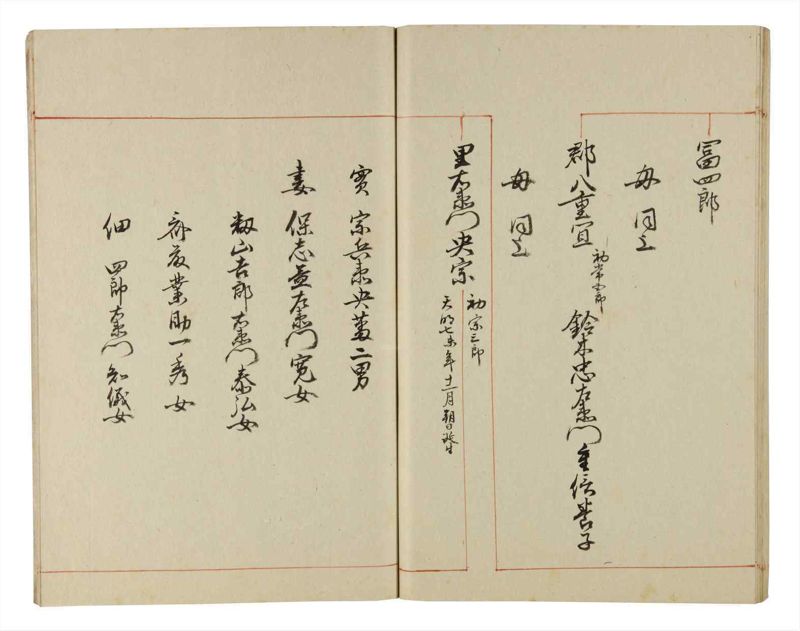 冨四郎
母同上
郡八重冝 鈴木忠左衛門重信養子
初常五郎
母同上
里右衛門央宗
初宗三郎
天明七未年十一月朔日誕生
実 宗兵衛央蕃二男
妻 保志並左衛門寛女
籾山吉郎右衛門泰弘女
業助一秀女
佃四郎右衛門知儀女